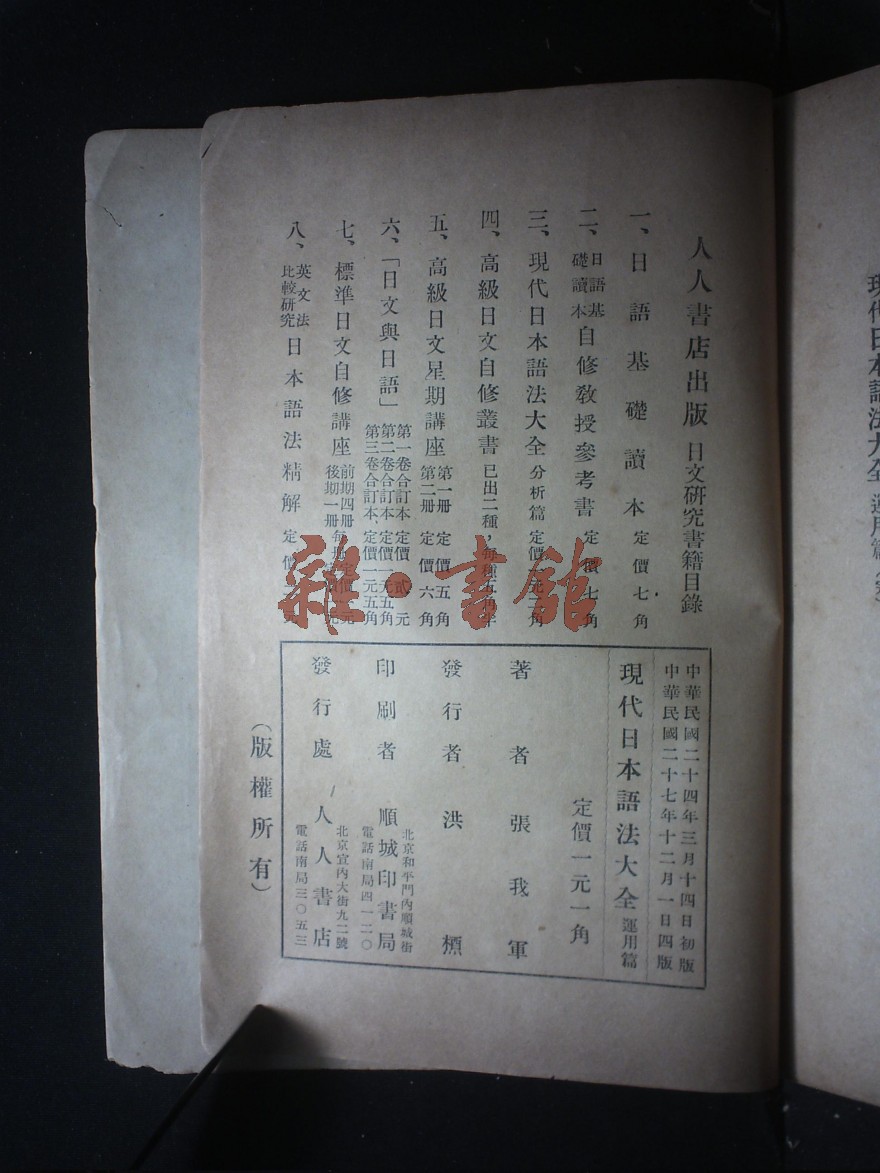 現代日本語法大全 運用篇(終)
人人書店出版 日文研究書籍目錄
一、日語基礎讀本 定價七角
二、日語基礎讀本自修教授參考書 定價七角
三、現代日本語法大全 分析篇 定價一元二角
四、高級日文自修叢書 已出二種,每種五角半
五、高級日文星期講座 第一册 定價五角
第二册 定價六角
六、「日文與日語」 第一卷合訂本 定價貳元
第二卷合訂本 定價一元五角
第三卷合訂本、定價一元五角
七、標準日文自修講座 前期四册 每册定價一元
後期一册
八、英文法比較研究日本語法精解 定價
雜·書館
中華民國二十四年三月十四日初版
中華民國二十七年十二月一日四版
現代日本語法大全 運用篇
定價一元一角
著者 張我軍
發行者 洪櫄
印刷者 順城印書局
北京和平門內順城街
電話南局四一二〇
發行處 人人書店
北京宣內大街九二號
電話南局三〇五三
(版權所有)